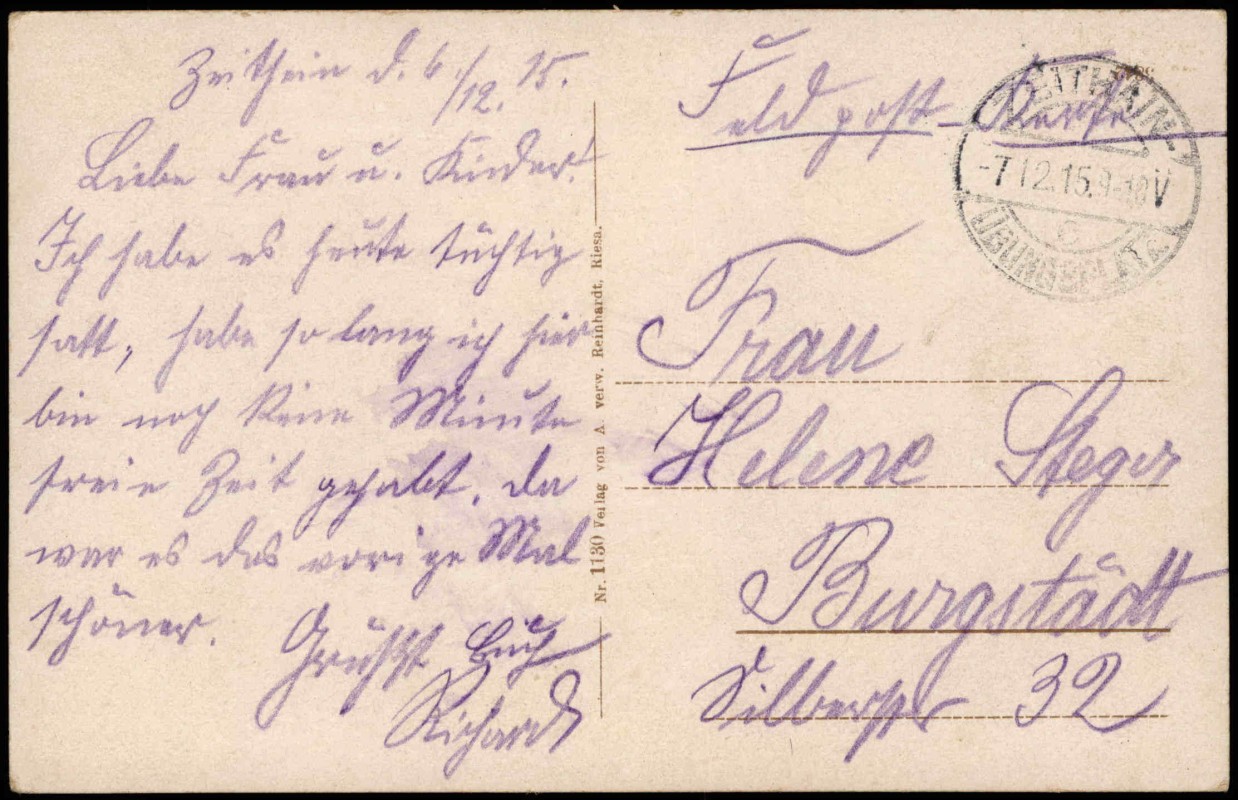 Zeithein d. 6./12. 15.
Liebe Frau u. Kinder!
Ich habe es heute tüchtig
satt, habe so lang ich hier
bin noch keine Minute
freie Zeit gehabt, da
war es das vorige Mal
schöner. Grüsst Euch
Richard
Nr. 1130 Verlag von A. verw. Reinhardt, Riesa.
Feldpost-Karte
ZEITHAIN
-7.12.15.9-10V
c
ÜBUNGSPLATZ
Frau
Helene Steger
Burgstädt
Silberstr 32